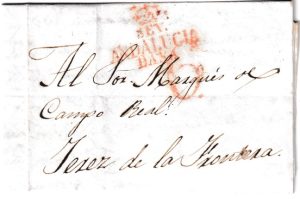 ANDALUCIA
BAXA
Al Sor. Marqués de
Campo Real.
Jerez de la Frontera.